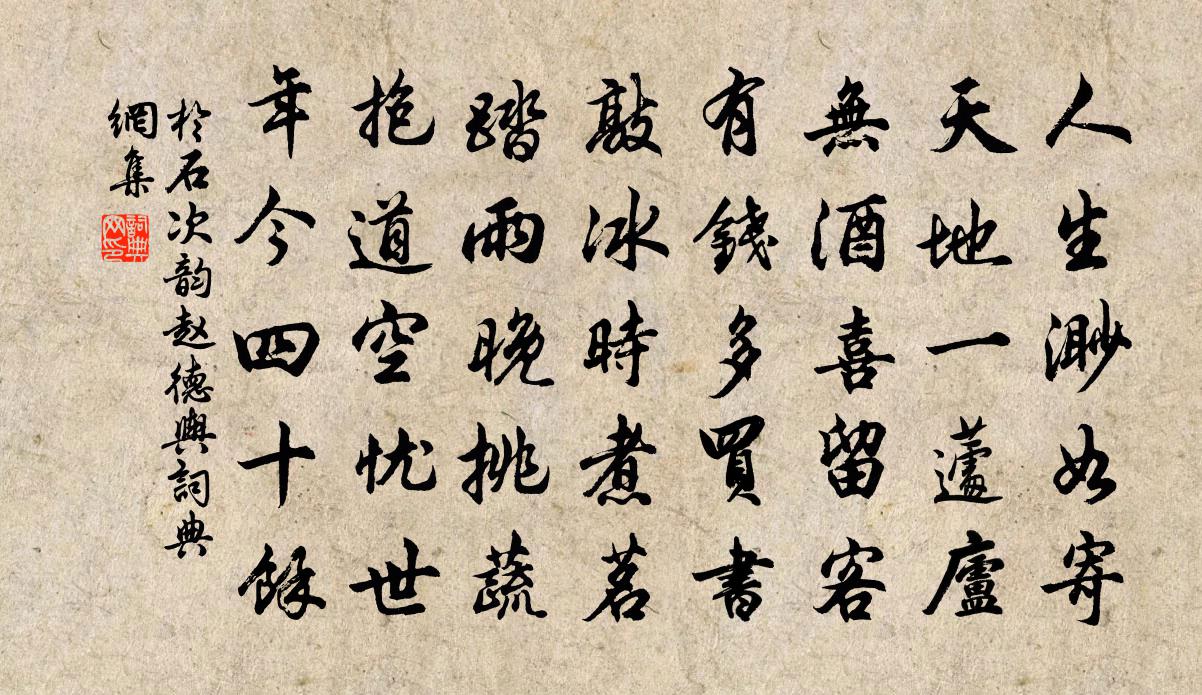 人生渺如寄
天地一蘧廬
無酒喜留客
有錢多買書
敲冰時煮茗
踏雨晚挑蔬
抱道空忧世
年今四十餘
於石次韵赵德輿詞典
網集
詞典
网印